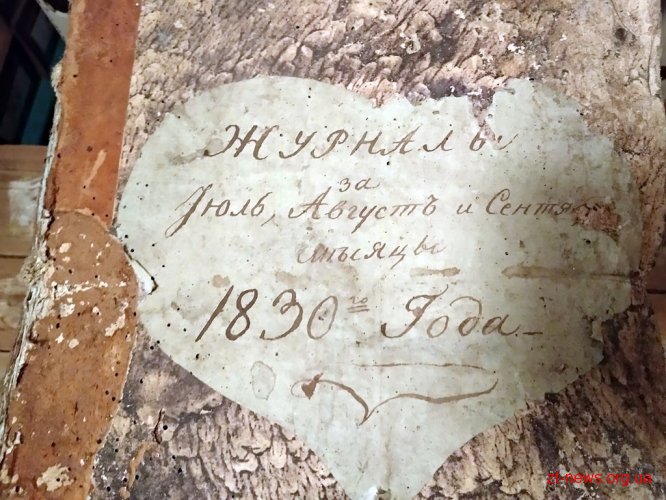 Журналы
за
Июль, Августъ и Сентя
мѣсяцы
1830го Года
zt-news.org.ua